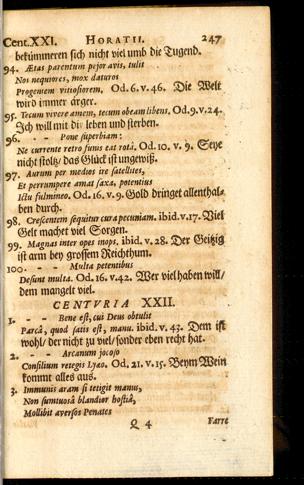 Cent. XXI. HORATII. 247
bekümmeren sich nicht viel umb die Tugend.
94. Ætas parentum pejor avis, tulit
Nos nequiores, mox daturos
Progeniem vitiosiorem. Od. 6. v. 46. Die Welt
wird immer ärger.
95. Tecum vivere amem, tecum obeam libens. Od. 9. v. 24.
Ich will mit dir leben und sterben.
96. - - Pone superbiam:
Ne currente retro funis eat rotâ. Od. 10. v. 9. Seye
nicht stoltz/ das Glück ist ungewiß.
97. Aurum per medios ire satellites,
Et perrumpere amat saxa, potentius
Ictu fulmineo. Od. 16. v. 9. Gold dringet allenthal-
ben durch.
98. Crescentem sequitur cura pecuniam. ibid. v. 17. Viel
Gelt machet viel Sorgen.
99. Magnas inter opes inops. ibid. v. 28. Der Geitzig
ist arm bey grossem Reichthum.
100. - - Multa petentibus
Desunt multa. Od. 16. v. 42. Wer viel haben will/
dem mangelt viel.
CENTURIA XXII.
1. - - Bene est, cui Deus obtulit
Parcâ, quod satis est, manu. ibid. v. 43. Dem ist
wohl/ der nicht zu viel/ sonder eben recht hat.
2. - - Arcanum jocoso
Consilium retegis Lyæo. Od. 21. v. 15. Beym Wein
kommt alles aus.
3. Immunis aram si tetigit manus,
Non sumtuosâ blandior hostiâ,
Mollibit aversos Penates
Q 4 Farre